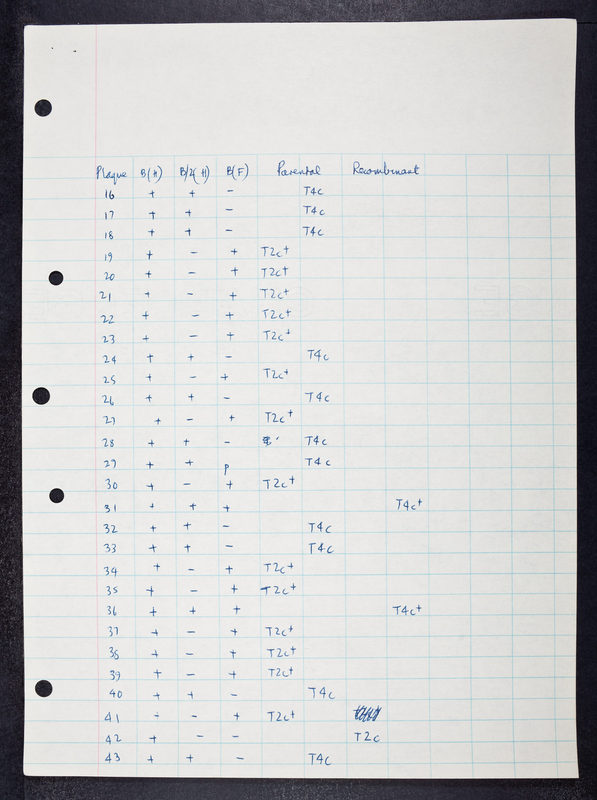 Plaque B(H) B/2(H) B(F) Parental Recombinant
16 + + - T4c
17 + + - T4c
18 + + - T4c
19 + - + T2c+
20 + - + T2c+
21 + - + T2c+
22 + - + T2c+
23 + - + T2c+
24 + + - T4c
25 + - + T2c+
26 + + - T4c
27 + - + T2c+
28 + + - T4c
29 + + p T4c
30 + - + T2c+
31 + + + T4c+
32 + + - T4c
33 + + - T4c
34 + - + T2c+
35 + - + T2c+
36 + + + T4c+
37 + - + T2c+
38 + - + T2c+
39 + - + T2c+
40 + + - T4c
41 + - + T2c+
42 + - - T2c
43 + + - T4c